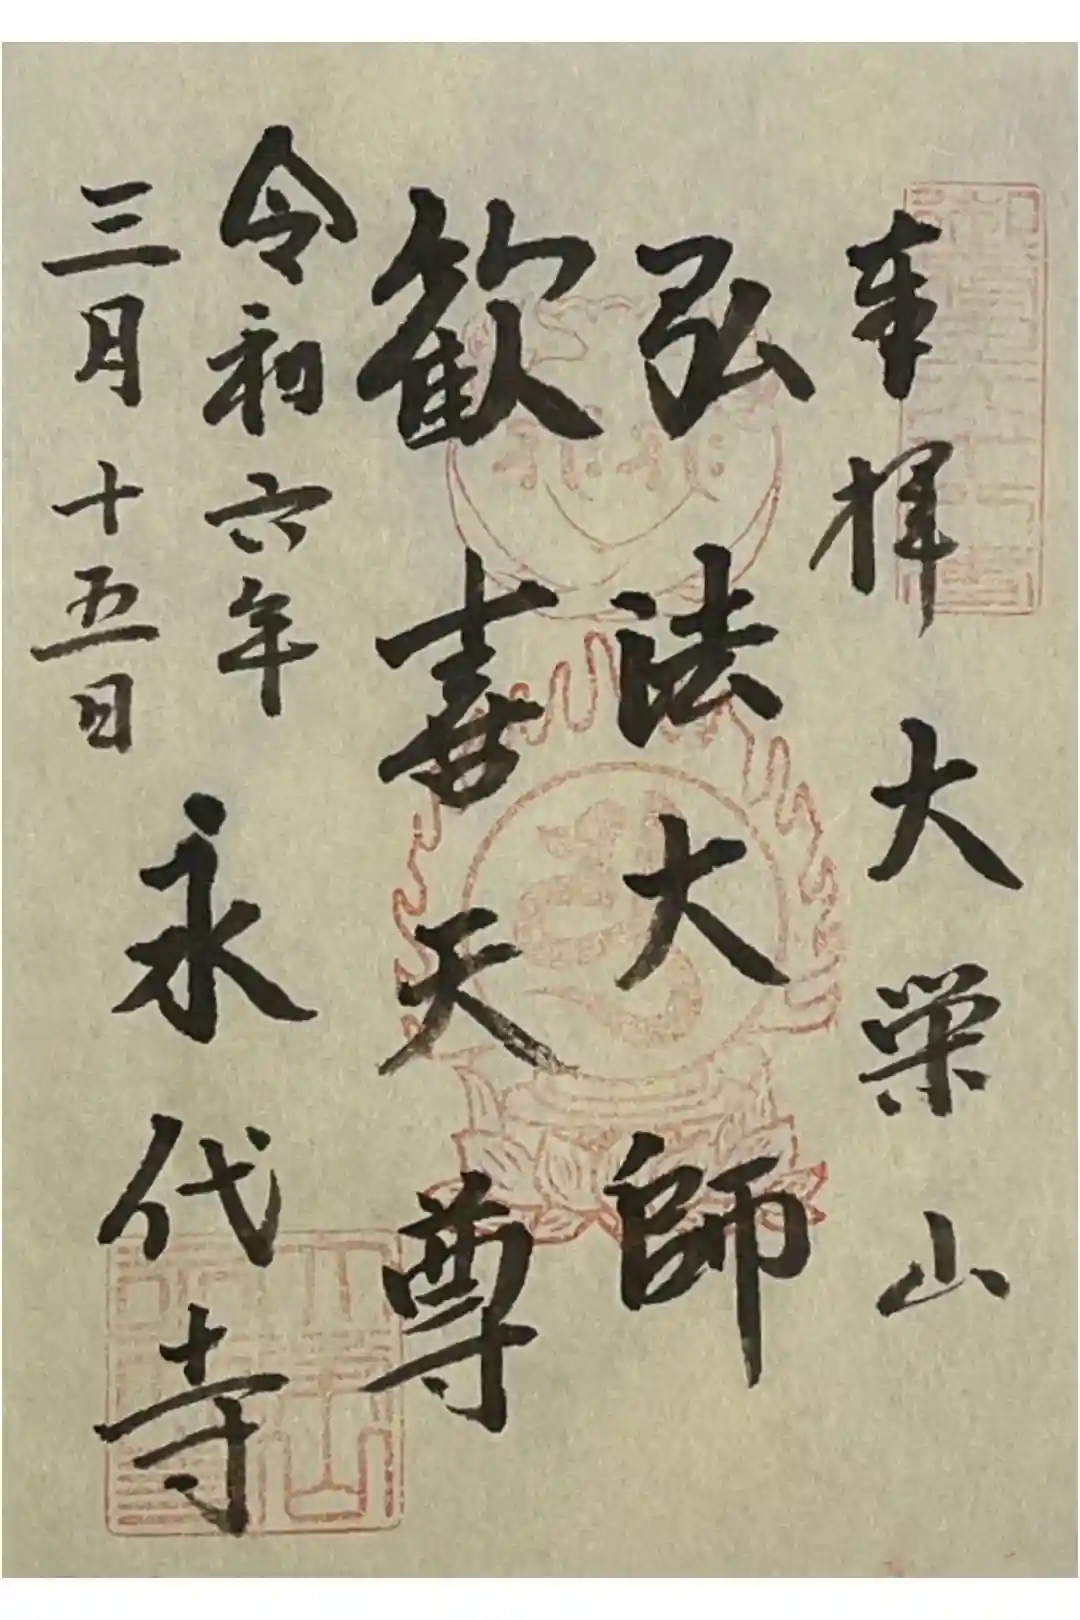 奉拝 大栄山
弘法大師
歓喜天尊
令和六年
三月十五日
永代寺